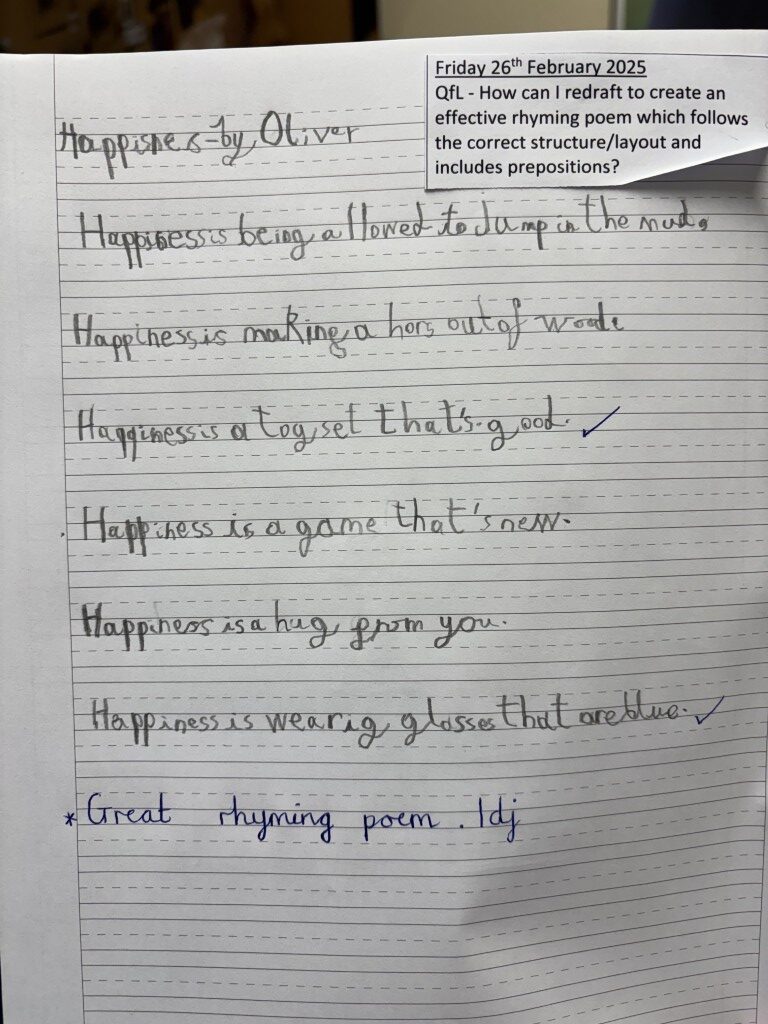 Friday 26th February 2025
QfL - How can I redraft to create an
effective rhyming poem which follows
the correct structure/layout and
includes prepositions?
Happisnes-by Oliver
Happisess is being allowed to Jump in the mud.
Happiness is making a hors out of woode
Happiness is a toy set that's good.
Happiness is a game that's new.
Happiness is a hug from you.
Happiness is wearig glasses that are blue.
* Great rhyming poem. ldj